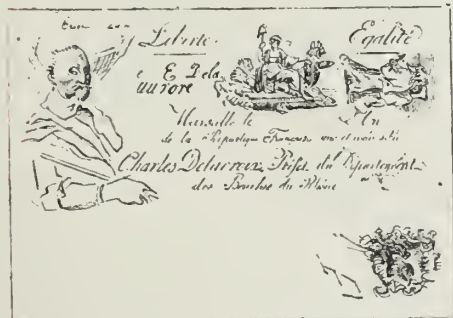 Liberté Egalité
E Dela
aurore
Marseille le An
de la République Française une et indivisible
Charles Delacroix, Préfet du Département
des Bouches du Rhône